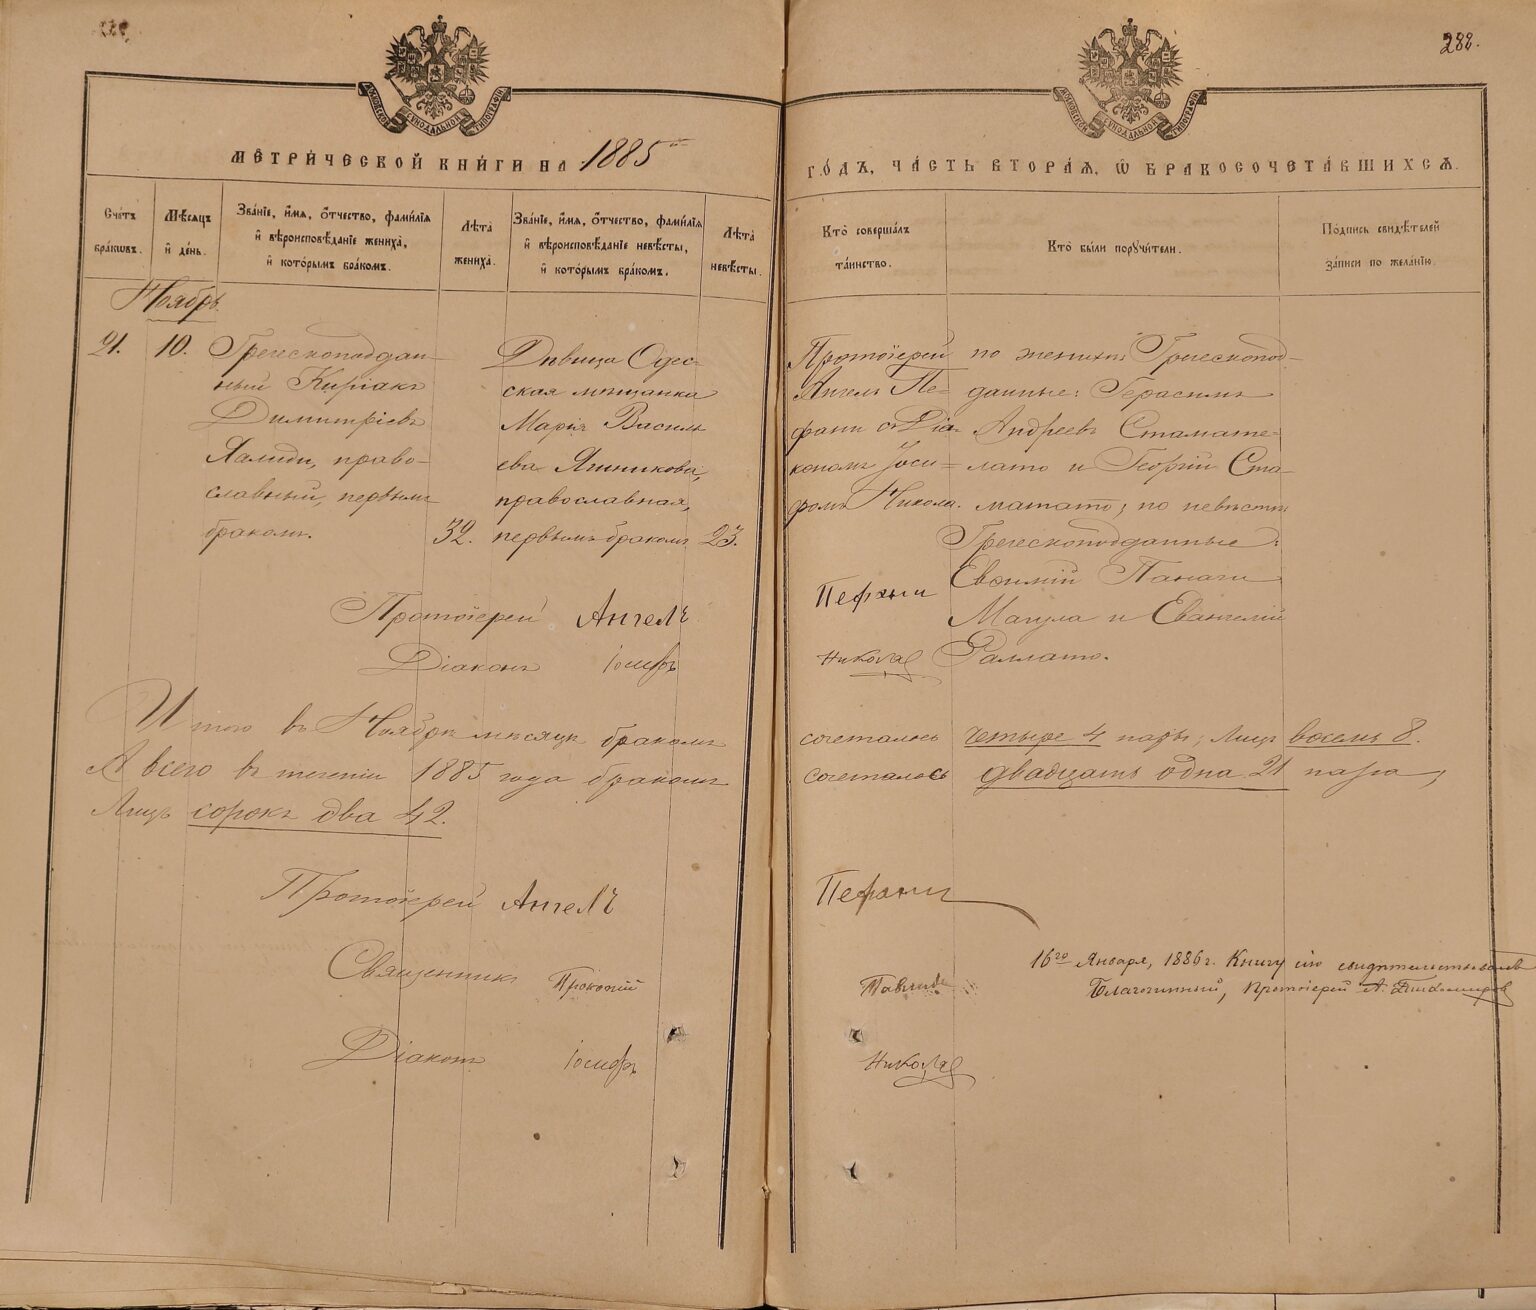 288.
МОСКОВСКОЙ СѴНОДАЛЬНОЙ ТИПОГРАФІИ
МОСКОВСКОЙ СѴНОДАЛЬНОЙ ТИПОГРАФІИ
МЕТРИ́ЧЕСКОЙ КНИ́ГИ НА 1885 ГО́ДЪ, ЧА́СТЬ ВТОРА́Я, Ѡ БРАКОСОЧЕТА́ВШИХСЯ.
Сче́тъ бра́кѡвъ.
Мѣ́сяцъ и҆ де́нь.
Зва́нїе, и҆́мя, ѻ҆́тчество, фами́лїя и҆ вѣроисповѣ́данїе жениха̀, и҆ кото́рымъ бра́комъ.
Лѣ́та жениха̀.
Зва́нїе, и҆́мя, ѻ҆́тчество, фами́лїя и҆ вѣроисповѣ́данїе невѣ́сты, и҆ кото́рымъ бра́комъ.
Лѣ́та невѣ́сты.
Кто̀ соверша́лъ та́инство.
Кто̀ бы́ли порꙋчи́тели.
По́дпись свидѣ́телей за́писи по жела́нїю.
Ноябрь.
21.
10.
Греческоподдан-
ный Киріакъ
Димитріевъ
Халиди, право-
славный, первымъ
бракомъ.
32.
Дѣвица Одес-
ская мѣщанка
Марія Василь
ева Ячникова,
православная,
первымъ бракомъ
23.
Протоіерей
Ангелъ Пе-
фани съ Діа-
кономъ Іоси-
фомъ Никола.
по женихѣ: Греческопод-
данные: Герасимъ
Андреевъ Стамате-
лато и Георгій Ста-
матато; по невѣстѣ
Греческоподданные:
Евѳимій Панаги
Магула и Евангелій
Раллато.
Протоіерей Ангелъ Пефани
Діаконъ Іосифъ Николая
Итого въ Ноябрѣ мѣсяцѣ бракомъ сочеталось четыре 4 пары; лицъ восемь 8.
А всего въ теченіи 1885 года бракомъ сочеталось двадцать одна 21 пара,
лицъ сорокъ два 42.
Протоіерей Ангелъ Пефани
Священникъ Прокопій
Діаконъ Іосифъ Николая
16го Января, 1886 г. Книгу сію свидѣтельствовалъ
Благочинный, Протоіерей А.